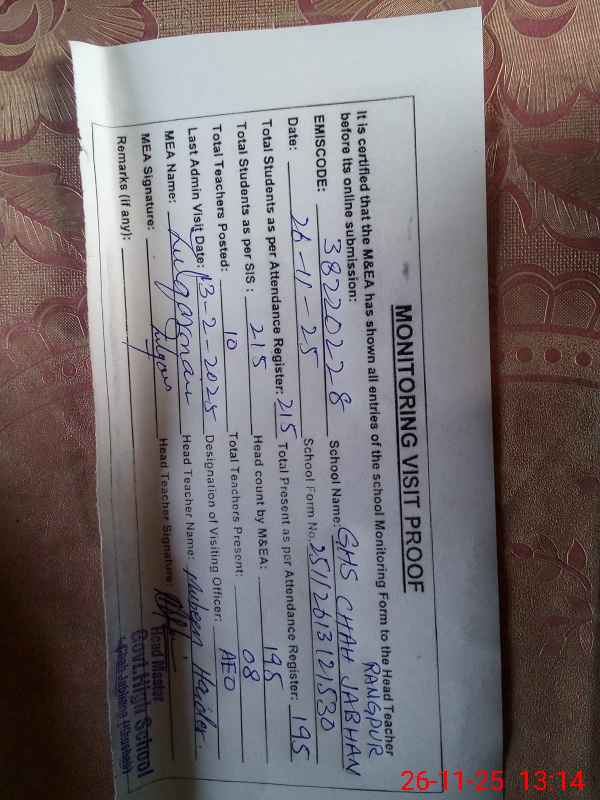 MONITORING VISIT PROOF
It is certified that the M&EA has shown all entries of the school Monitoring Form to the Head Teacher
before its online submission:
RANGPUR
EMISCODE: 38220228 School Name: GHS CHAH JABHAN
Date: 26-11-25 School Form No. 251126131221530
Total Students as per Attendance Register: 215 Total Present as per Attendance Register: 195
Total Students as per SIS: 215 Head count by M&EA: 195
Total Teachers Posted: 10 Total Teachers Present: 08
Last Admin Visit Date: 13-2-2025 Designation of Visiting Officer: AEO
MEA Name: Head Teacher Name: Haider
MEA Signature: Head Teacher Signature:
Remarks (if any):
Head Master
Govt. High School
26-11-25 13:14